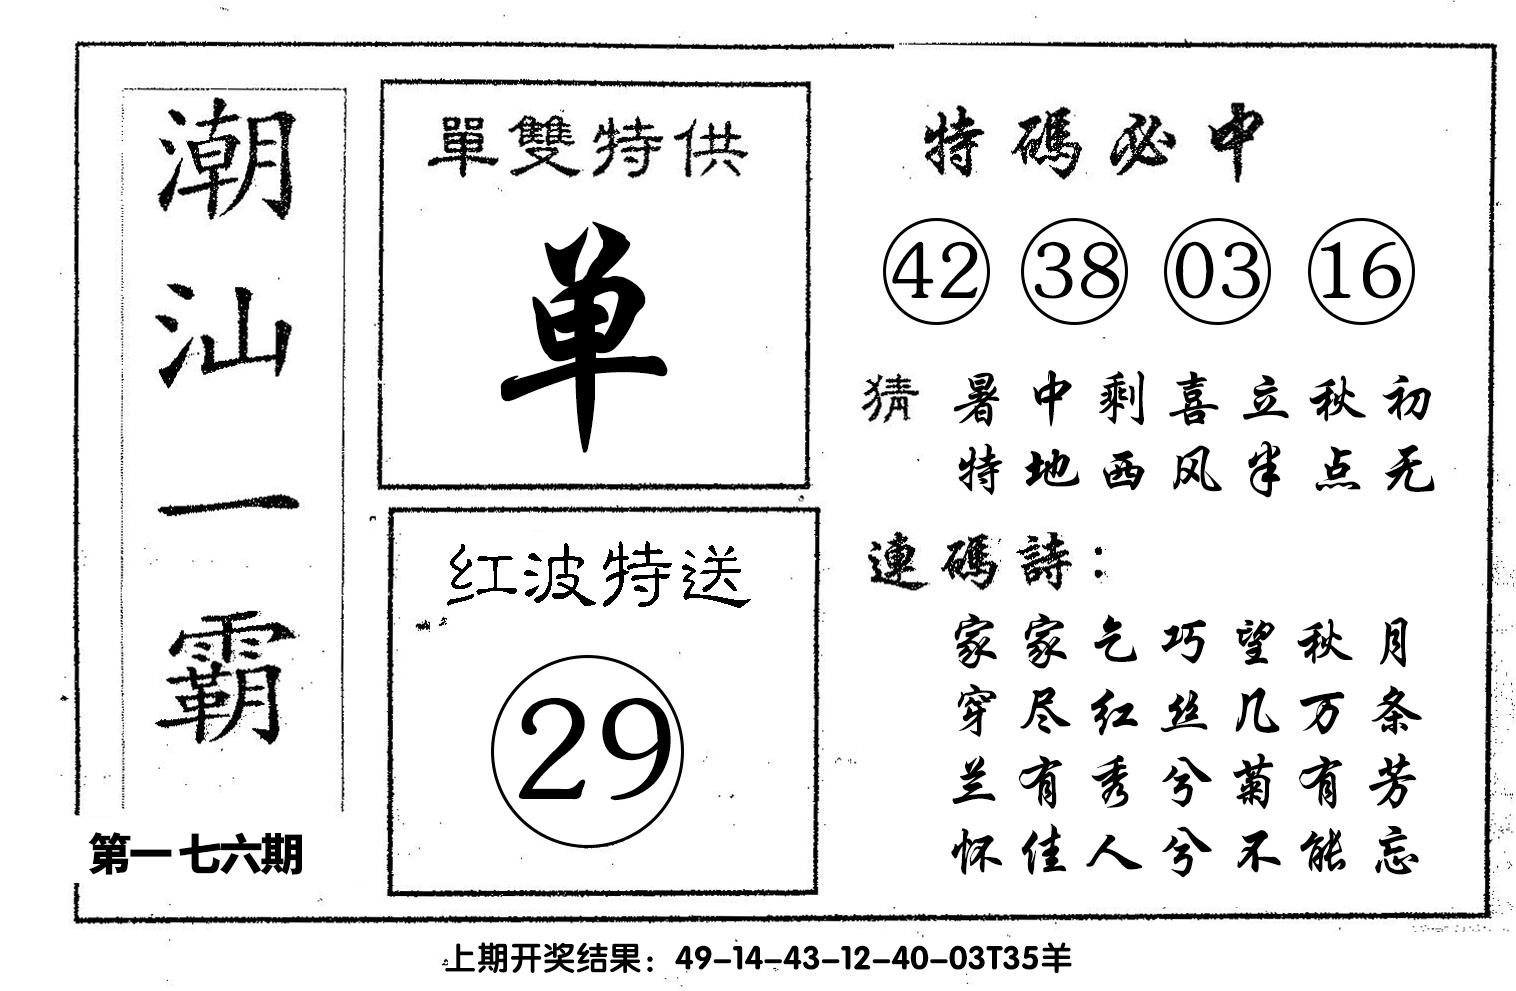 潮汕一霸
第一七六期
單雙特供
单
红波特送
29
特碼必中
42 38 03 16
猜 暑中剩喜立秋初
特地西风半点无
連碼詩：
家家乞巧望秋月
穿尽红丝几万条
兰有秀兮菊有芳
怀佳人兮不能忘
上期开奖结果：49-14-43-12-40-03T35羊